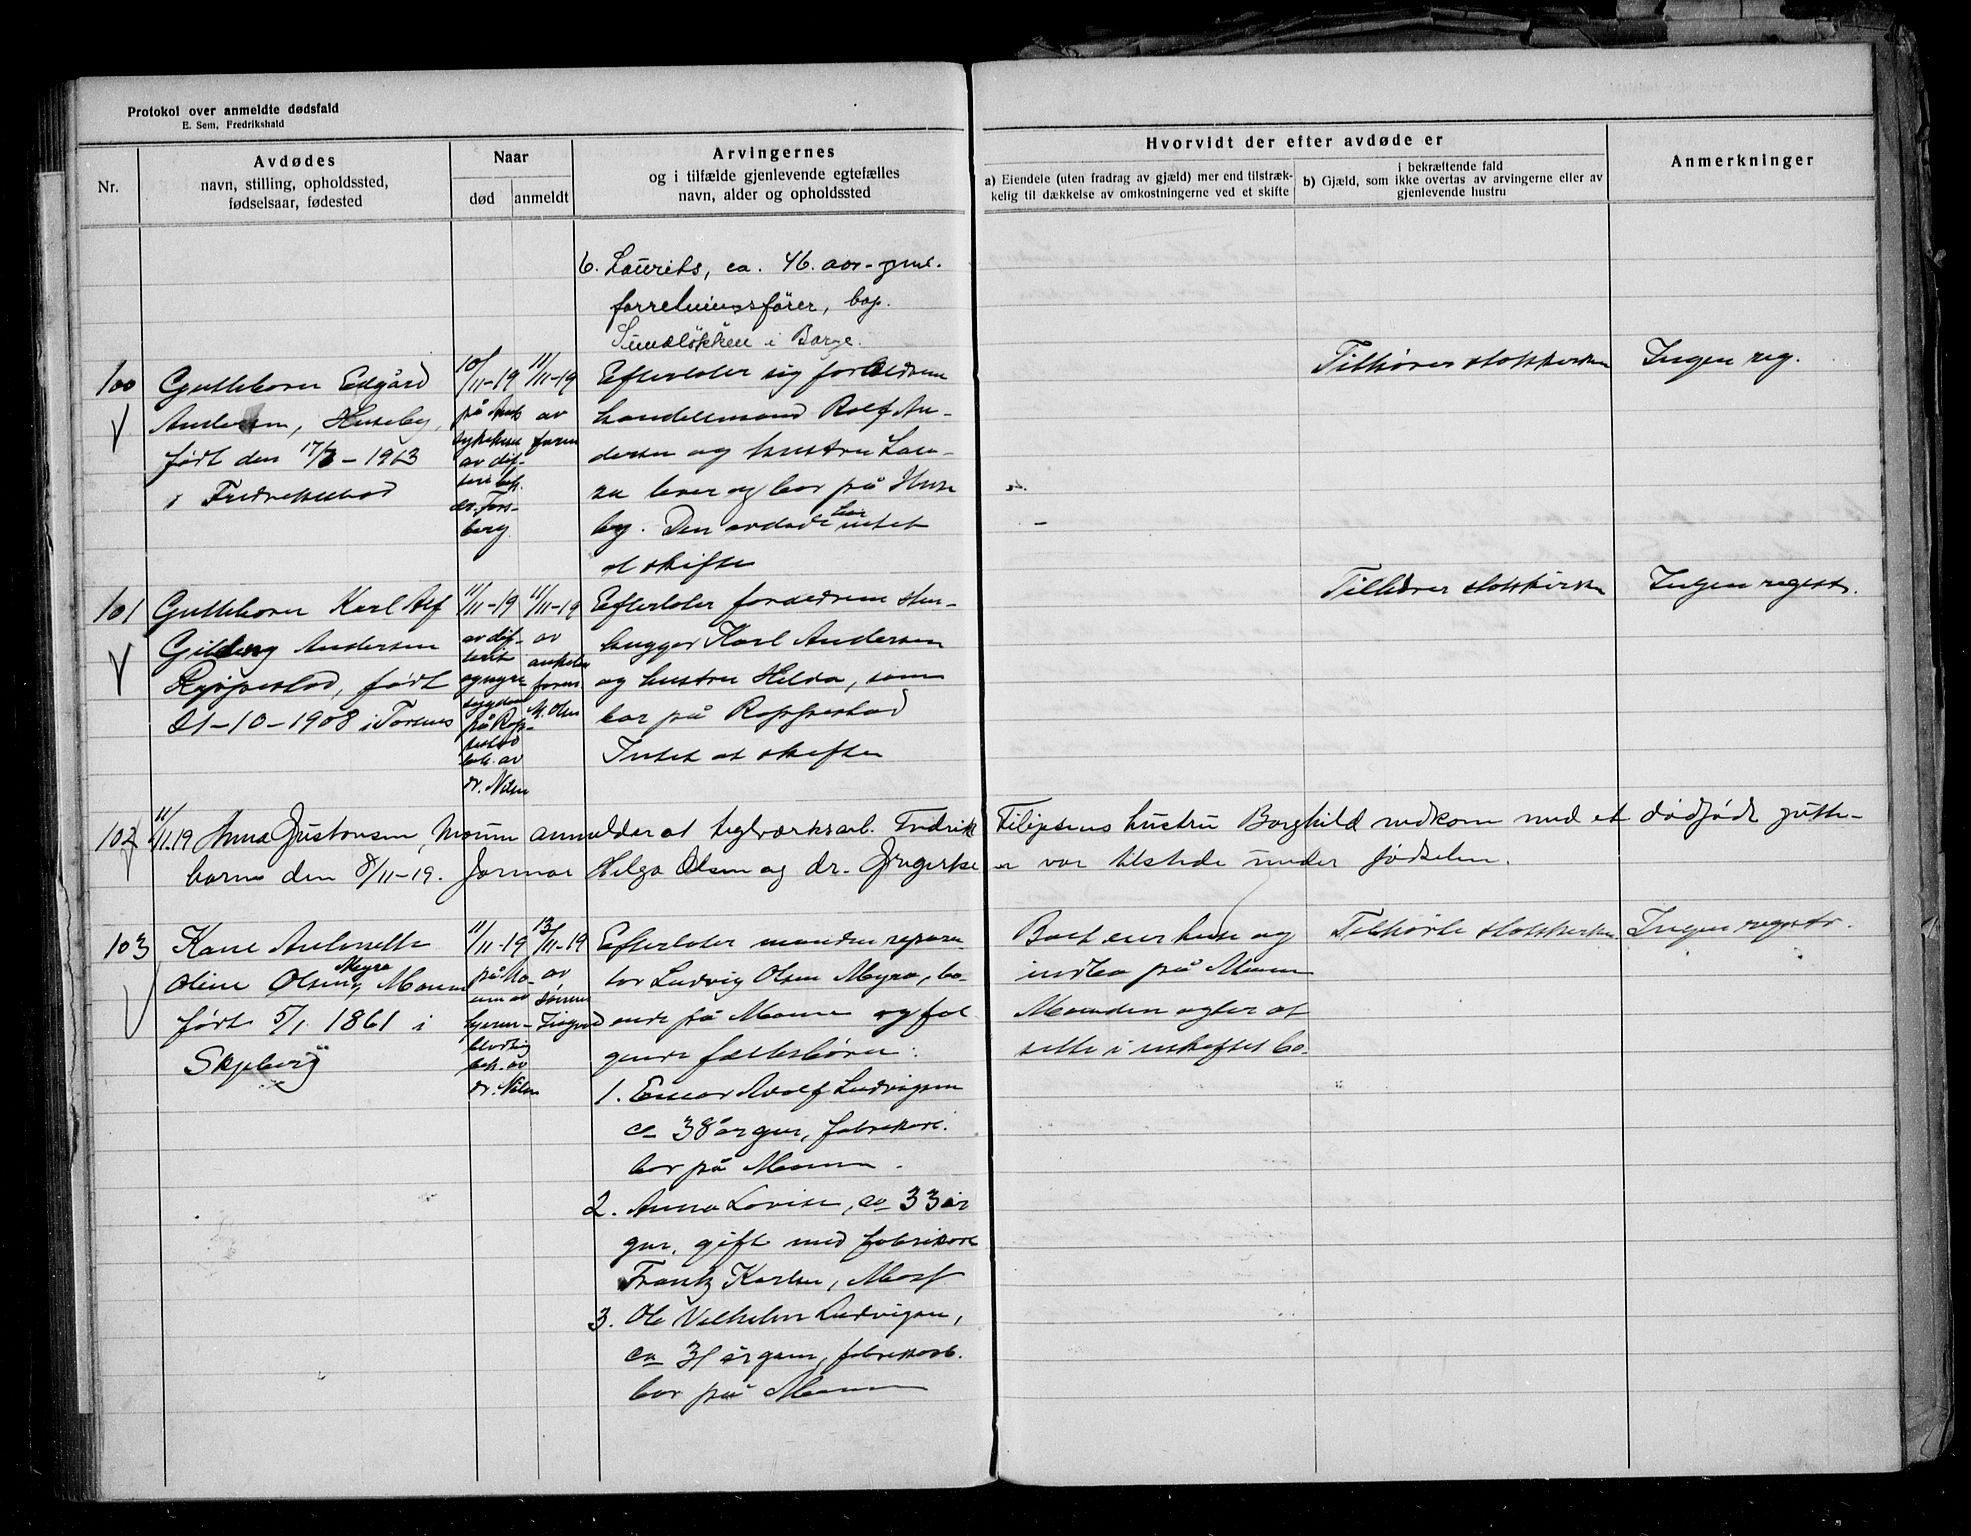 Protokol over anmeldte dødsfald
E. Sem, Fredrikshald
Nr.
Avdødes
navn, stilling, opholdssted,
fødselsaar, fødested
Naar
død
anmeldt
Arvingernes
og i tilfælde gjenlevende egtefælles
navn, alder og opholdssted
Hvorvidt der efter avdøde er
a) Eiendele (uten fradrag av gjæld) mer end tilstræk-
kelig til dækkelse av omkostningerne ved et skifte
b) Gjæld, som
i bekræftende fald
ikke overtas av arvingerne eller av
gjenlevende hustru
Anmerkninger
6. Laurits, ca. 46. aar
forretningsfører, bop.
Sundløkken i Borge.
100
Guttebarn Edgård
Andersen, Huseby,
født den 17/3-1913
i Fredrikstad
10/11-19
på
sykehuset
av dif-
teri beh.
dr. Fors-
berg.
11/11-19
av
faren
Efterlater sig forældrene
handelsmand Rolf An-
dersen og hustru Lov-
sa lever og bor på Huse
by. Den avdøde har intet
at skifte
Tilhører statskirken
Ingen reg.
101
Guttebarn Karl Alf
Gilberg Andersen
Roppestad, født
21-10-1908 i Torsnes
11/11-19
av dif-
terit
og nyre-
sygdom
på Rop-
pestad
beh. av
dr. Nilsen
11/11-19
av
M. Olsen
Efterlater forældrene sten-
hugger Karl Andersen
og hustru Hilda, som
bor på Roppestad
Intet at skifte
Tilhører statskirken
Ingen registr.
102
11/11-19 Anna Gustavsen, Moum anmelder at teglverksarb. Fredrik Filipsens hustru Borghild nedkom med et dødfødt gutte-
barn den 8/11-19. Jormor Helga Olsen og dr. var tilstede under fødselen.
103
Karie Antonette
Oline Olsen Myra, Moum
født 5/1 1861 i
Skjeberg
11/11-19
på Mo-
um av
hjerne-
blødning
beh. av
dr. Nilsen
13/11-19
av
sønnen
Efterlater manden repara-
tør Ludvig Olsen Myra, bo-
ende på Moum og føl
gende fællesbørn:
1. Einar Adolf Ludvigsen
ca 38 år gm., fabrikarb.
bor på Moum.
2. Anna Lovise, ca 33 år
gm. gift med fabrikarb
Frantz Karlsen, Moss
3. Ole Vilhelm Ludvigsen,
ca 31 år gam, fabrikarb.
bor på Moum
Boet eier hus og
indbo på Moum
Manden agter at
sitte i uskiftet bo.
Tilhørte statskirken
Ingen registr.